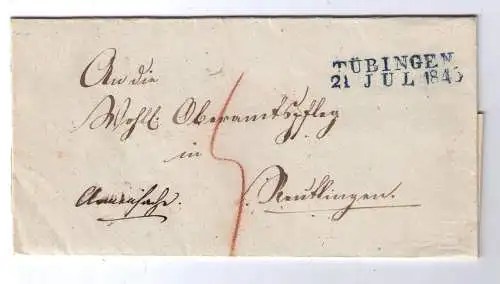 TÜBINGEN
21 JUL 1845
An die
Wohll. Oberamtspfleg
in
Reutlingen.
Armensache.